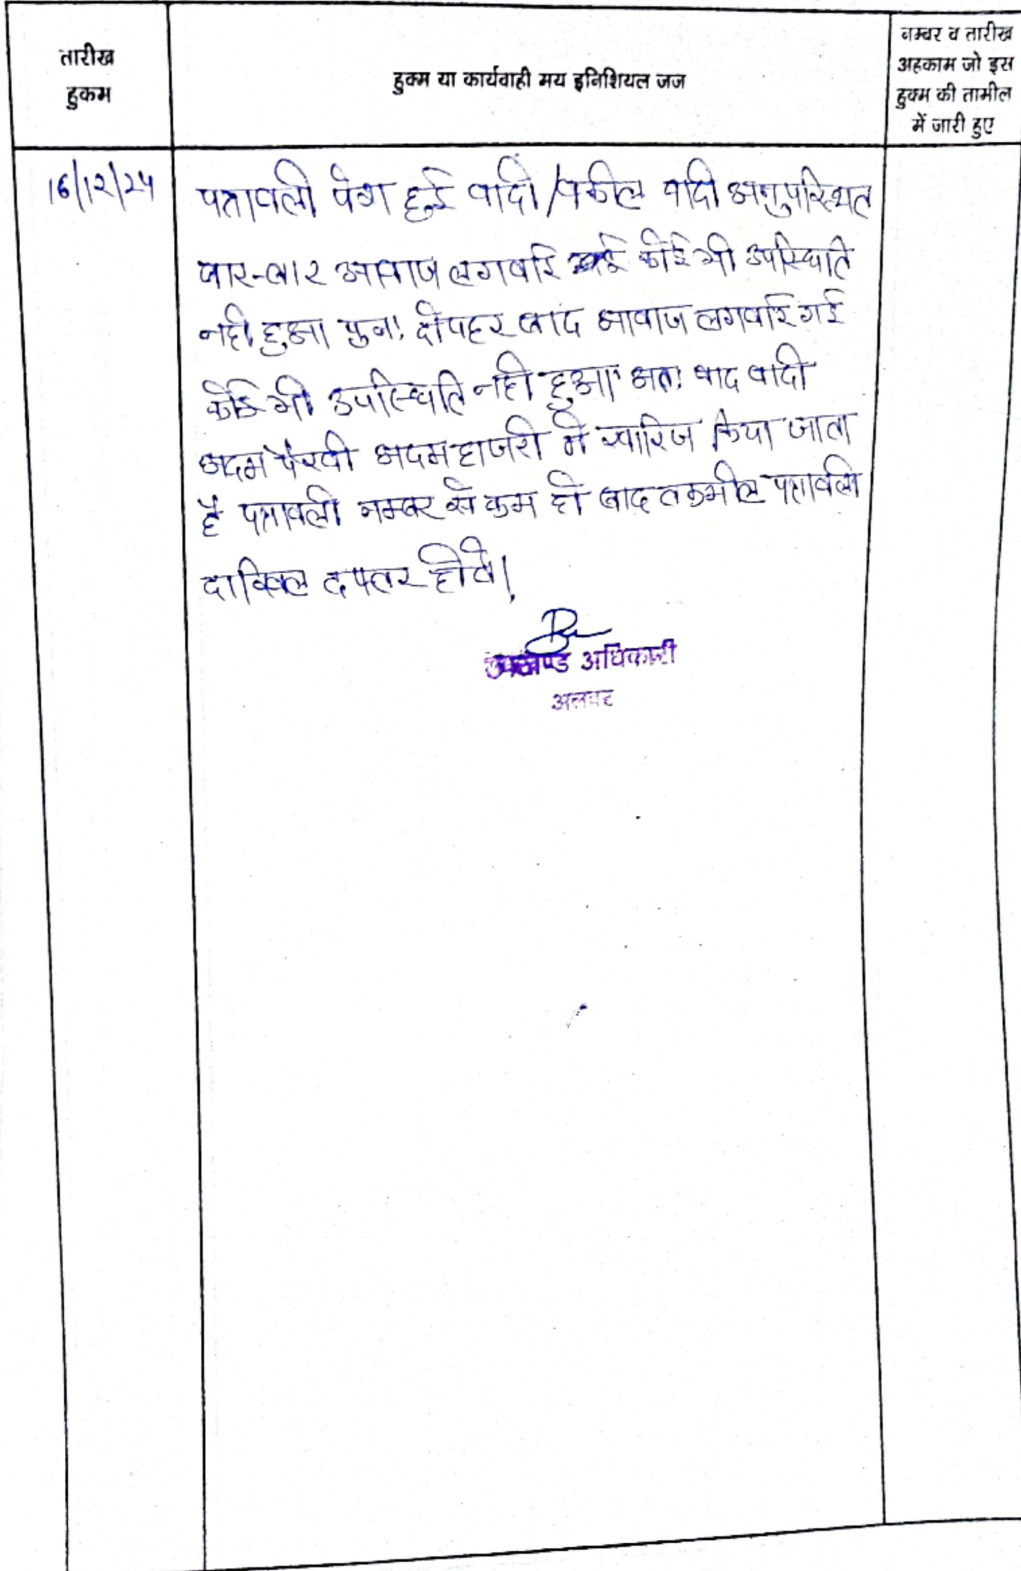 तारीख
हुकम
हुक्म या कार्यवाही मय इनिशियल जज
नम्बर व तारीख
अहकाम जो इस
हुक्म की तामील
में जारी हुए
16/12/24
पत्रावली पेश हुई वादी/वकील वादी अनुपस्थित
बार-बार आवाज लगवाई गई कोई भी उपस्थिति
नही हुआ पुनः दोपहर बाद आवाज लगवाई गई
कोई भी उपस्थिति नही हुआ अतः वाद वादी
अदम पैरवी अदम हाजरी मे खारिज किया जाता
है पत्रावली नम्बर से कम हो बाद तकमील पत्रावली
दाखिल दफ्तर होवे।
उपखण्ड अधिकारी
अलवर